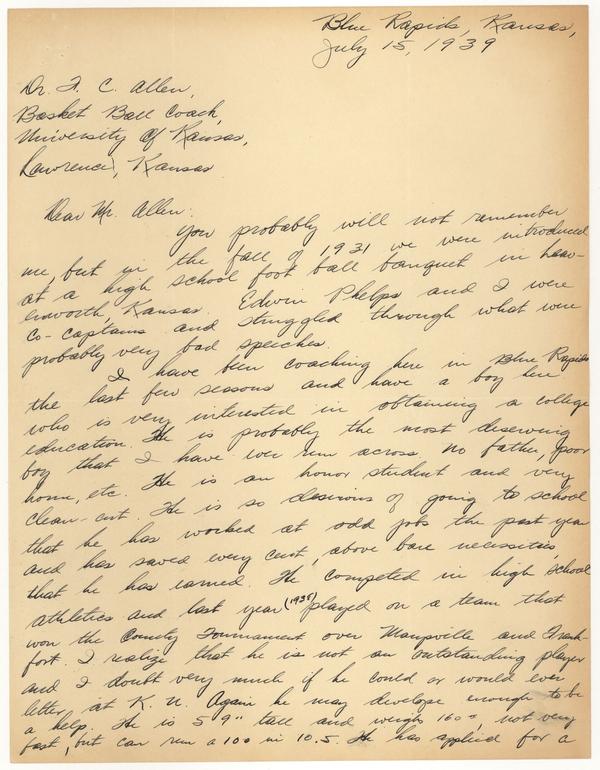 Blue Rapids, Kansas,
July 15, 1939
Dr. F. C. Allen,
Basket Ball Coach,
University of Kansas,
Lawrence, Kansas
Dear Mr. Allen:
You probably will not remember
me, but in the fall of 1931 we were introduced
at a high school foot ball banquet in Leav-
enworth, Kansas. Edwin Phelps and I were
Co-captains and struggled through what were
probably very bad speeches.
I have been coaching here in Blue Rapids
the last few seasons and have a boy here
who is very interested in obtaining a college
education. He is probably the most deserving
boy that I have ever run across. No father, poor
home, etc. He is an honor student and very
clean-cut. He is so desirous of going to school
that he has worked at odd jobs the past year
and has saved every cent, above bare necessities,
that he has earned. He competed in high school
athletics and last year (1938) played on a team that
won the County Tournament over Marysville and Frank-
fort. I realize that he is not an outstanding player
and I doubt very much if he could or would ever
letter at K. U. Again he may develop enough to be
a help. He is 5'9" tall and weighs 160#, not very
fast, but can run a 100 in 10.5. He has applied for a